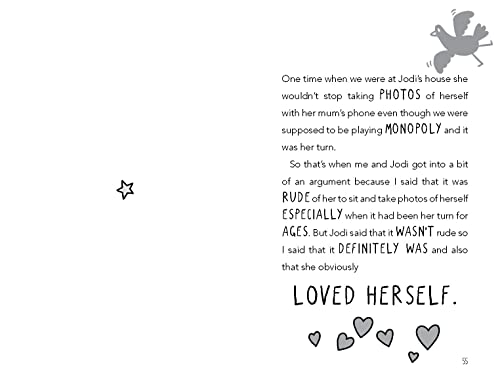 One time when we were at Jodi's house she
wouldn't stop taking PHOTOS of herself
with her mum's phone even though we were
supposed to be playing MONOPOLY and it
was her turn.
So that's when me and Jodi got into a bit
of an argument because I said that it was
RUDE of her to sit and take photos of herself
ESPECIALLY when it had been her turn for
AGES. But Jodi said that it WASN'T rude so
I said that it DEFINITELY WAS and also
that she obviously
LOVED HERSELF.
55